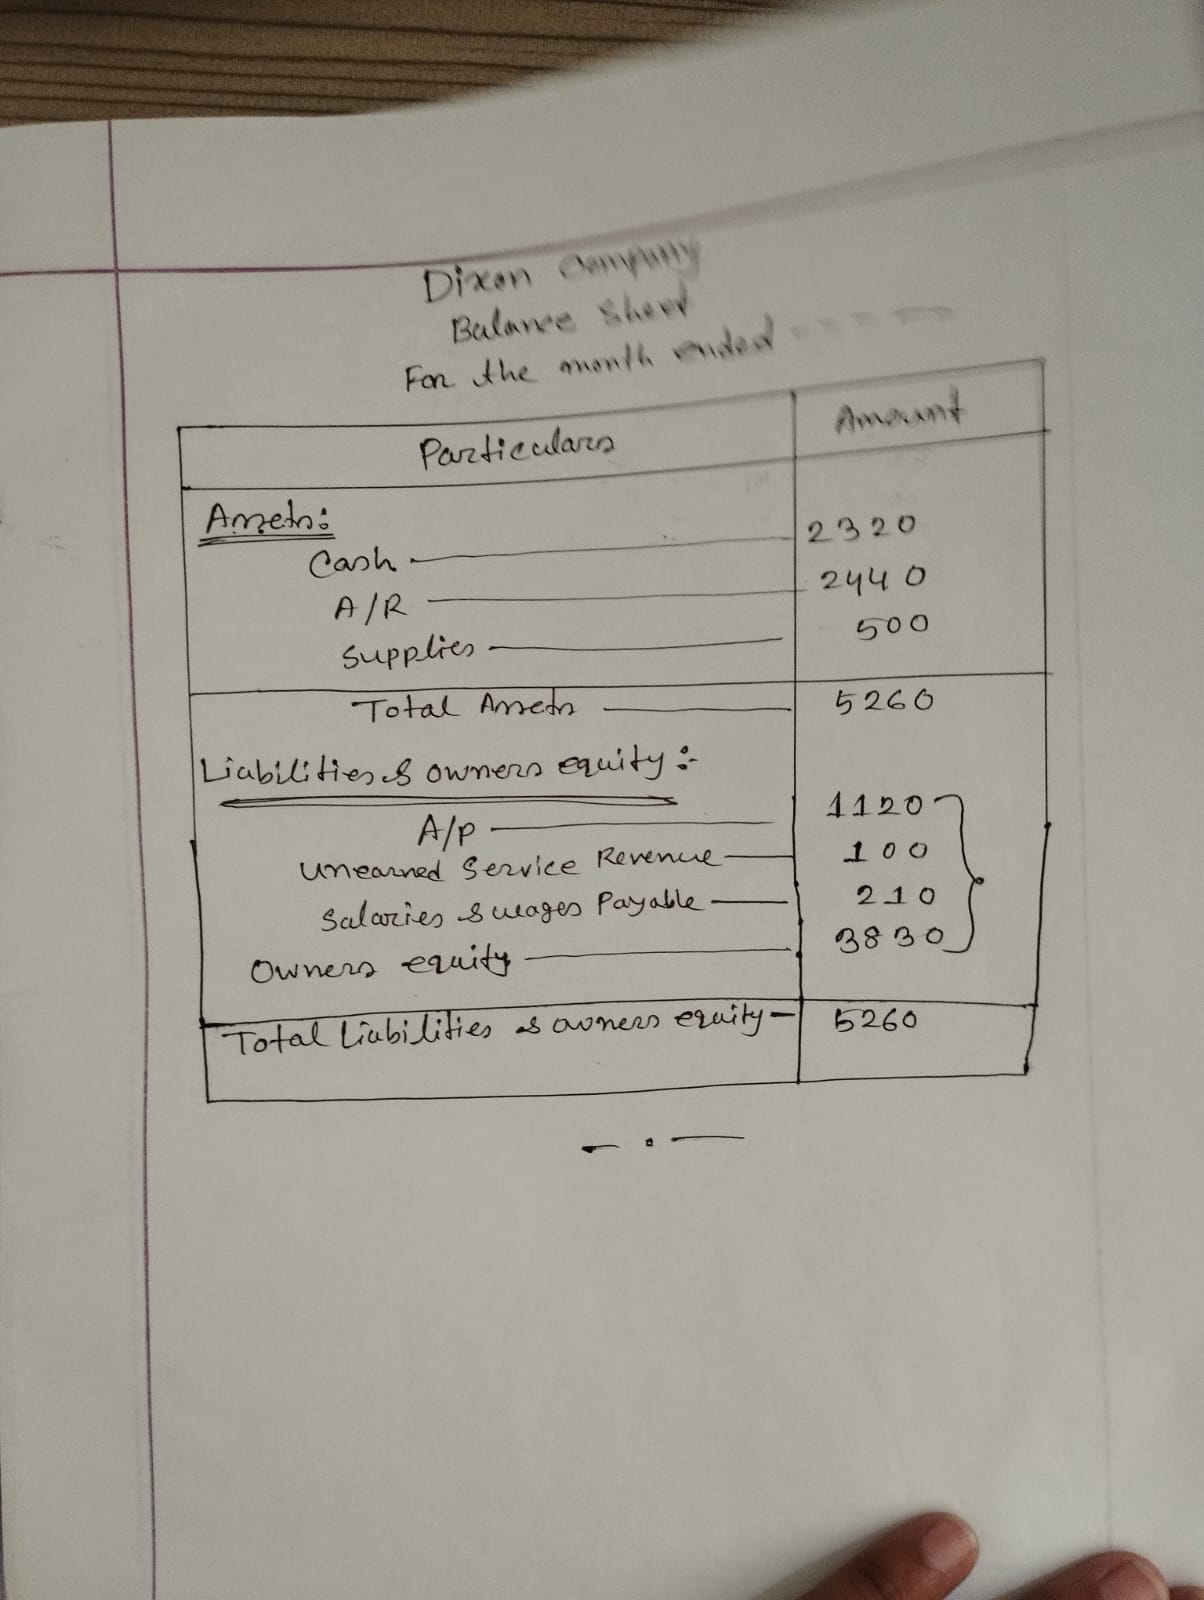 Dixon Company
Balance Sheet
For the month ended - - - - -
Particulars Amount
Assets:
Cash 2320
A/R 2440
Supplies 500
Total Assets 5260
Liabilities & owners equity :-
A/P 1120
Unearned Service Revenue 100
Salaries & wages Payable 210
Owners equity 3830
Total Liabilities & owners equity 5260